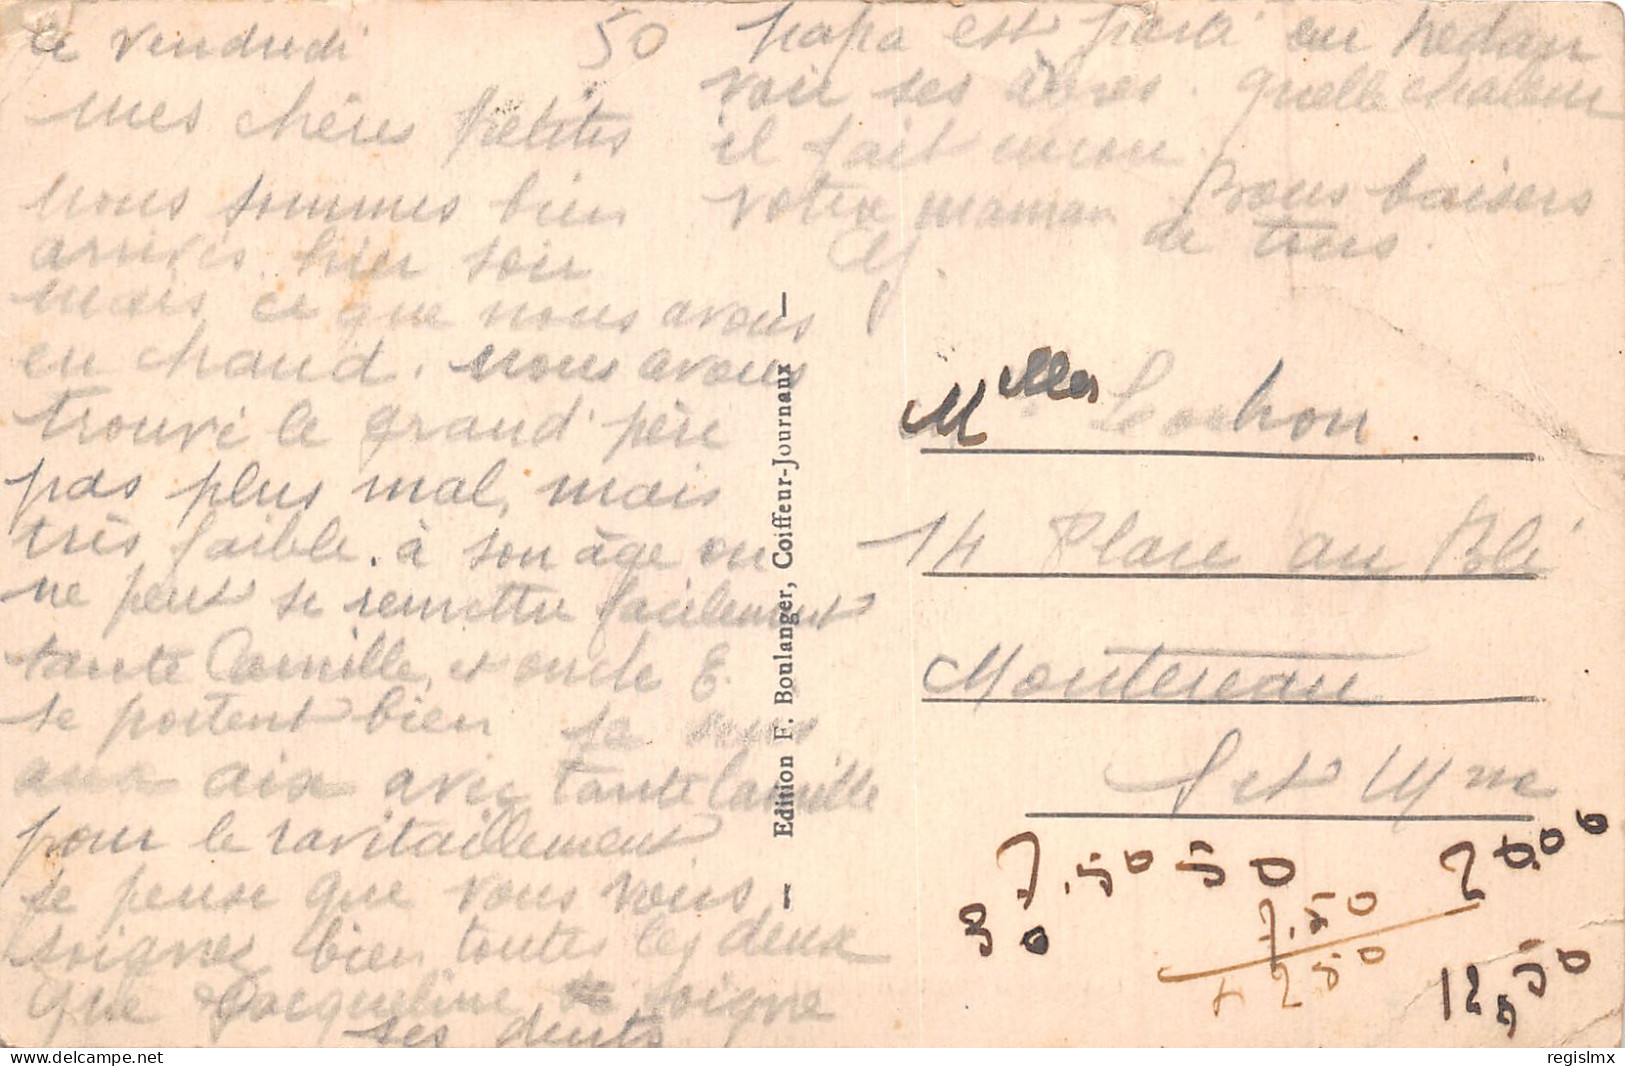 ce vendredi
50
mes chères petites
nous sommes bien
arrivés hier soir
mais ce que nous avons
eu chaud. nous avons
trouvé le grand père
pas plus mal, mais
très faible. à son âge on
ne peut se remettre facilement
tante Camille et oncle E.
se portent bien je suis
aux aix avec tante Camille
pour le ravitaillement
je pense que vous vous
soignez bien toutes les deux
que Jacqueline se soigne
ses dents
papa est parti en
voir ses . quelle chaleur
il fait encore
votre maman
bons baisers
de tous.
Edition F. Boulanger, Coiffeur-Journaux
Mlles Cochon
14 Place au Blé
Montereau
S et Mne
7.50 50
7.50
250
12,50
delcampe.net
regislmx